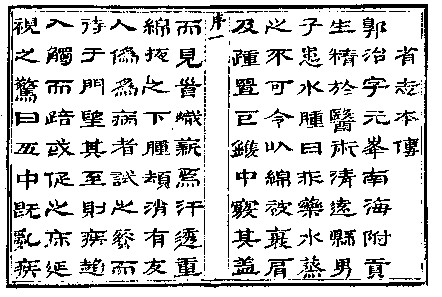 省志本傳
郭治字元峯南海附貢
生精於醫術清遠縣男
子患水腫曰非藥水蒸
之不可令以綿被裹肩
及踵置巨中竅其盖
序一
而見首熾薪焉汗透重
綿掖之下腫頓消有友
人僞爲病者試之而
待于門望其至則疾趨
入觸而踣或促之床延
視之驚曰五中既亂疾